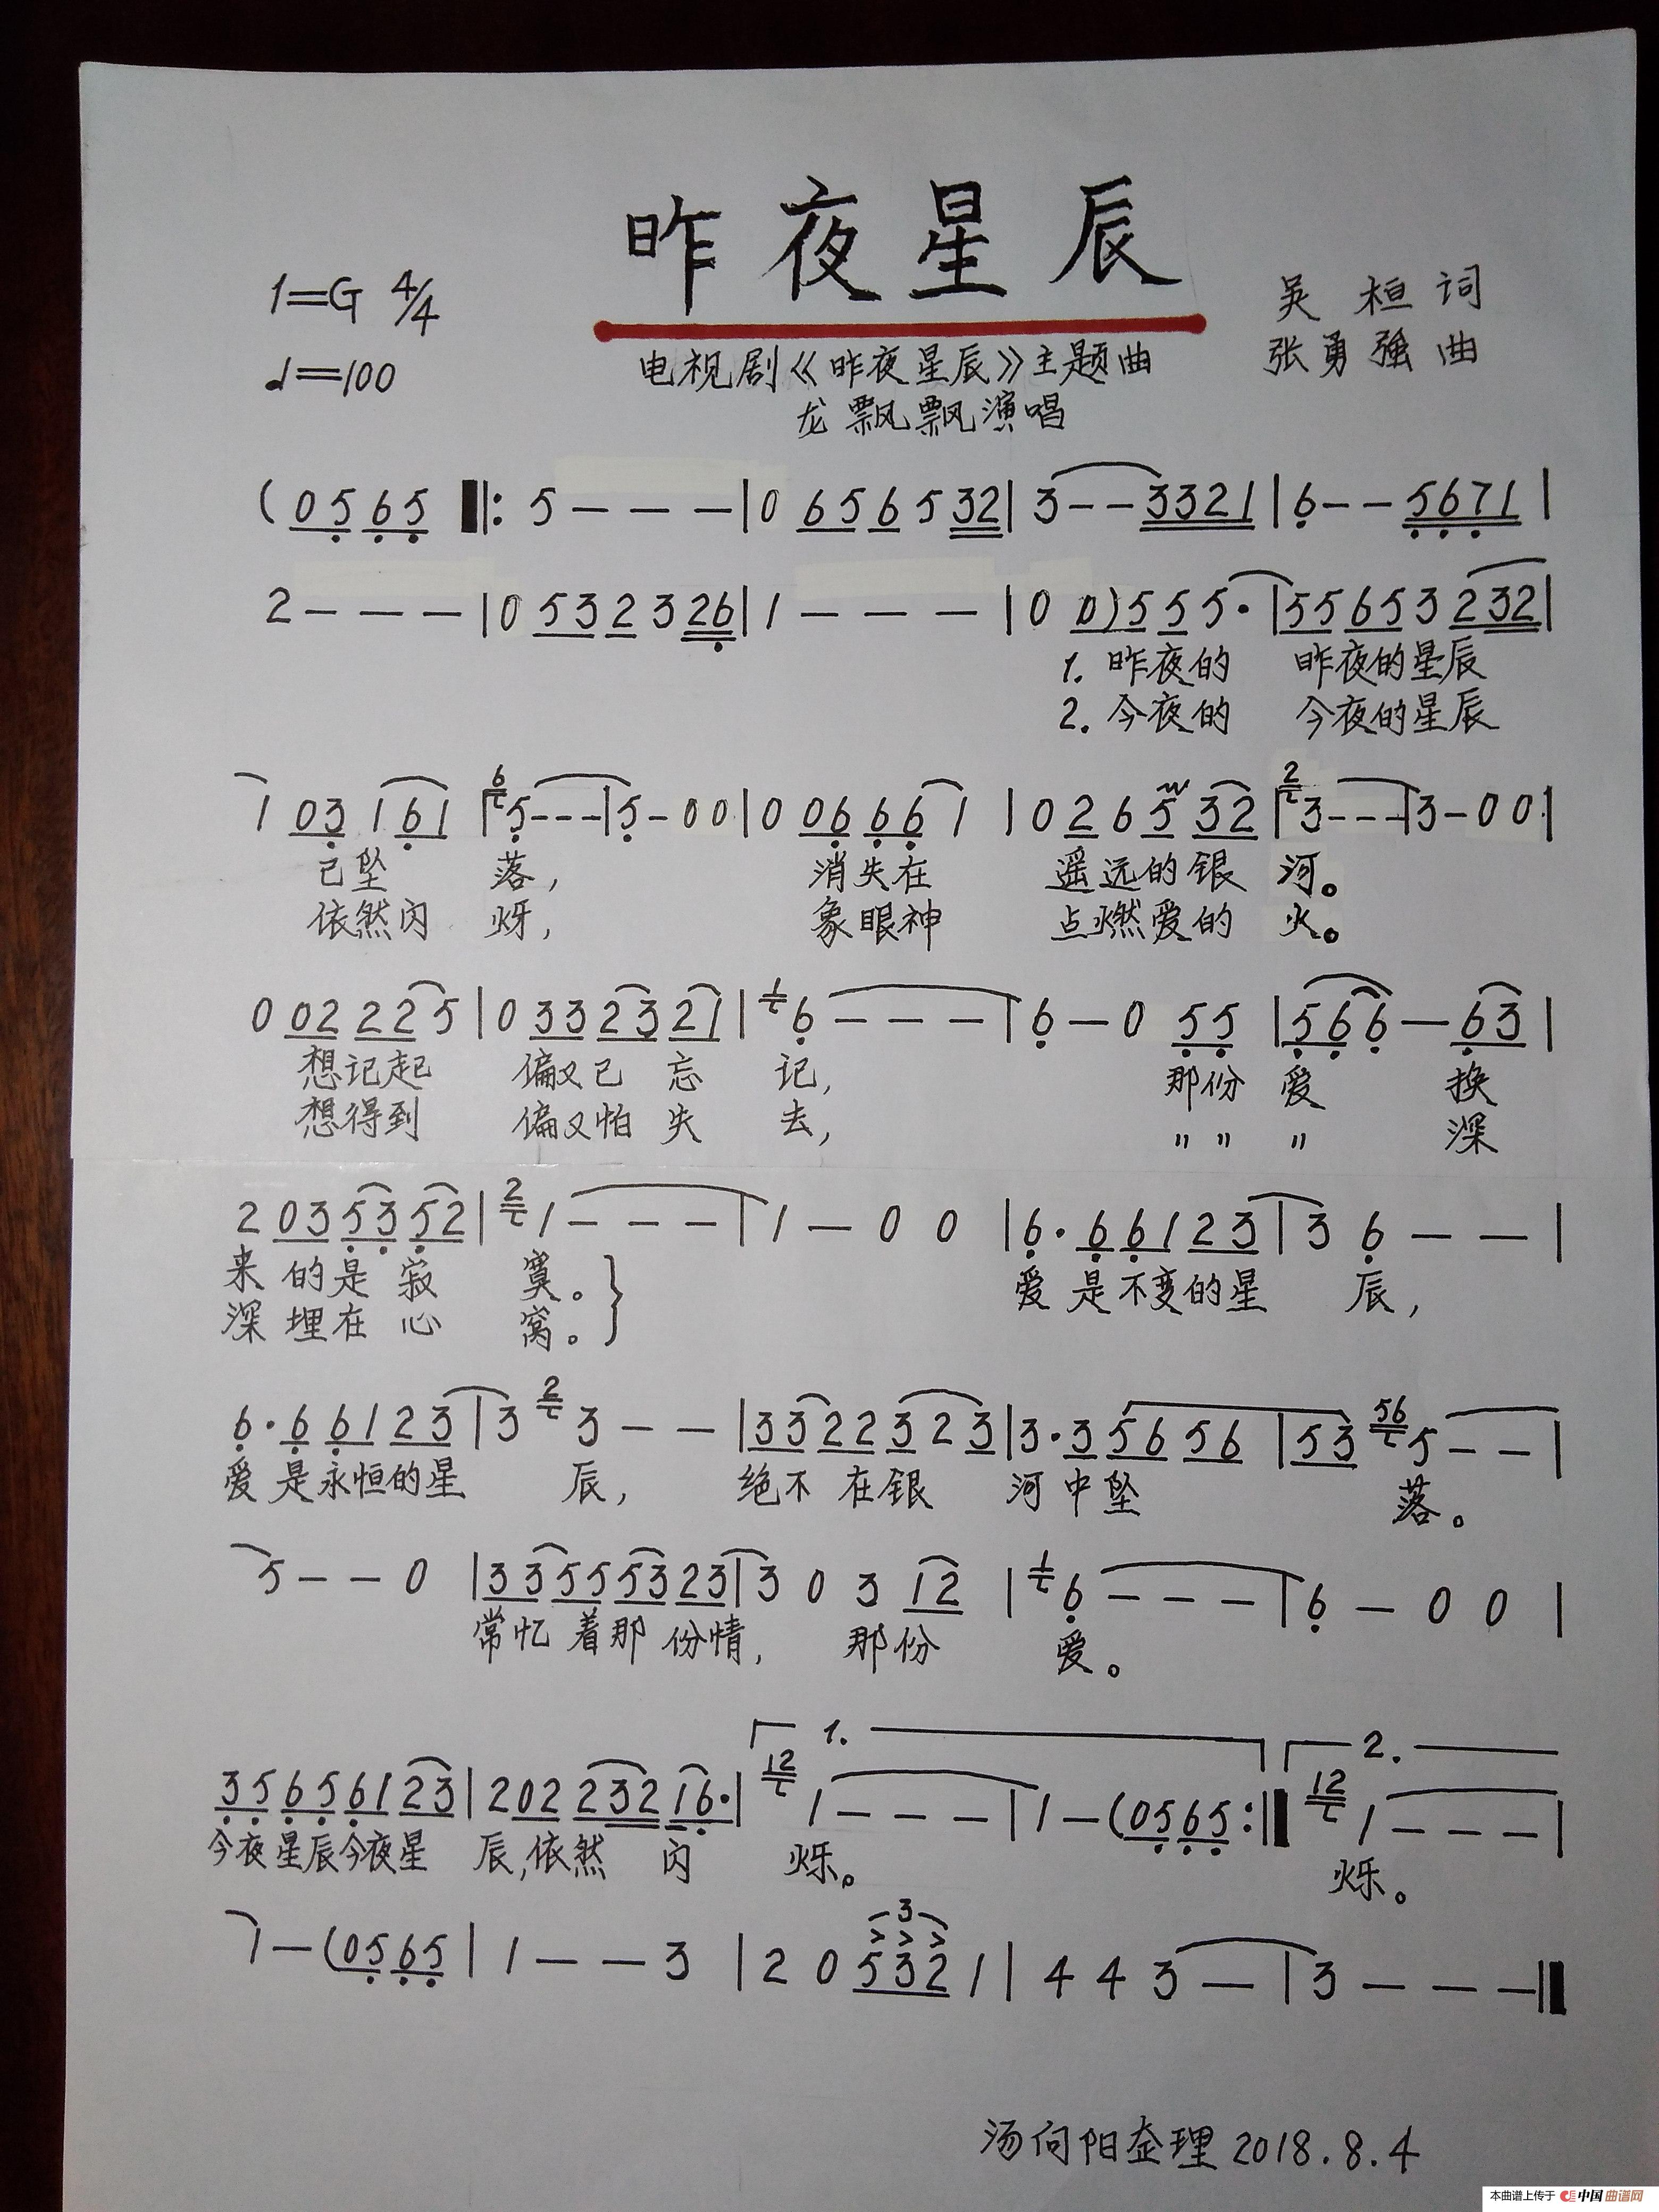 昨夜星辰
1=G 4/4
吴桓词
♩=100
张勇强曲
电视剧《昨夜星辰》主题曲
龙飘飘演唱
(0565 ‖: 5 - - - | 0 656 5 32 | 3 - - 3321 | 6 - - 5671 |
2 - - - | 0 532 3 26 | 1 - - - | 0 0)5 5 5· | 55 65 3 232 |
1. 昨夜的 昨夜的星辰
2. 今夜的 今夜的星辰
1 03 1 61 | 6 5 - - - | 5 - 0 0 | 0 06 66 1 | 0 2 6 5 32 | 2 3 - - - | 3 - 0 0 |
已坠 落, 消失在 遥远的银 河。
依然闪 烁, 象眼神 点燃爱的 火。
0 02 22 5 | 0 33 23 21 | 1 6 - - - | 6 - 0 55 | 56 6 - 63 |
想记起 偏又已 忘 记, 那份 爱 换
想得到 偏又怕 失 去, 〃 〃 〃 深
2 03 53 52 | 2 1 - - - | 1 - 0 0 | 6· 6 61 23 | 3 6 - - |
来 的是 寂 寞。 爱 是不变的星 辰,
深 埋在 心 窝。
6· 6 61 23 | 3 2 3 - - | 33 22 3 2 3 | 3· 3 56 56 | 53 56 5 - - |
爱 是永恒的星 辰, 绝不 在银 河中坠 落。
5 - - 0 | 33 55 53 23 | 3 0 3 12 | 1 6 - - - | 6 - 0 0 |
常忆 着那 份情, 那份 爱。
1. 2.
35 65 61 23 | 2 02 232 16· | 12 1 - - - | 1 - (0565 :‖ 12 1 - - - |
今夜星辰今夜星 辰,依然 闪 烁。 烁。
1 - (0565 | 1 - - 3 | 2 0 532 1 | 4 4 3 - | 3 - - - ‖
3
汤向阳奎理 2018.8.4
本曲谱上传于 中国曲谱网